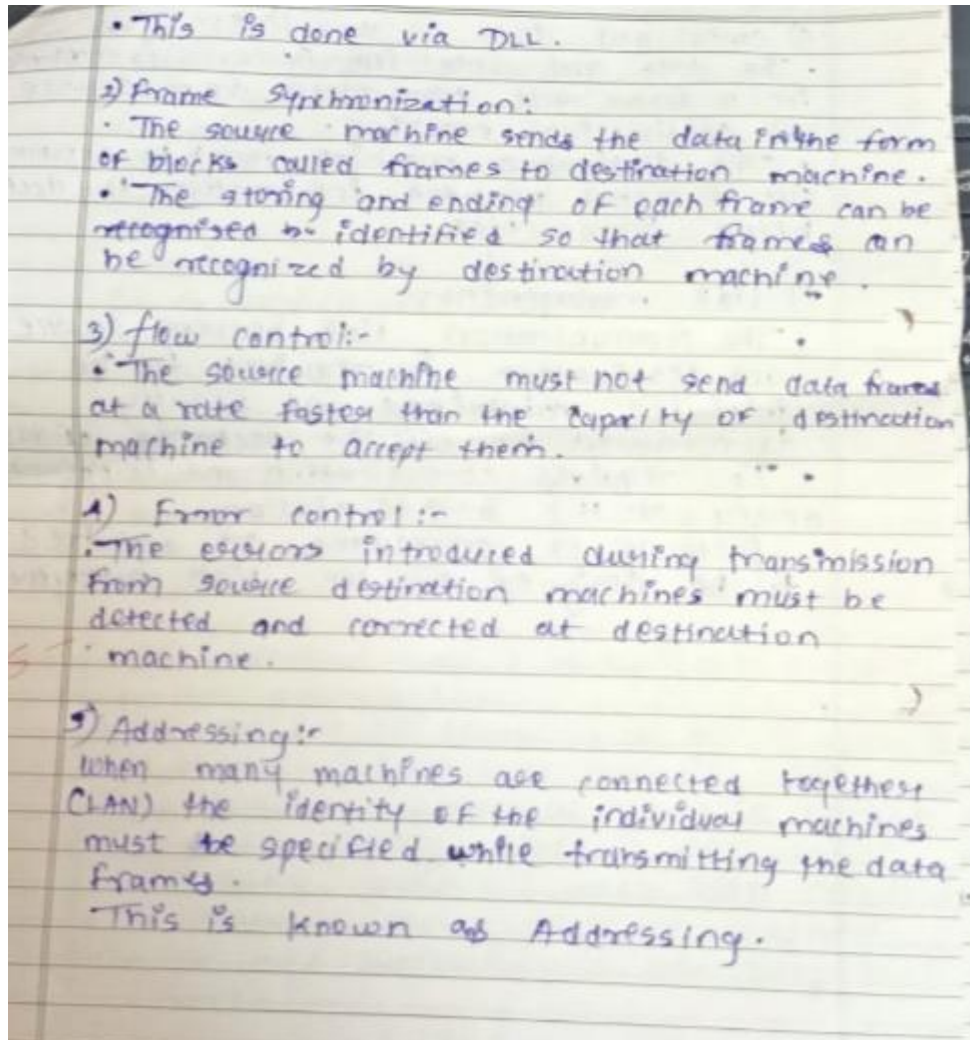 • This is done via DLL.
2) Frame Synchronization:
• The source machine sends the data in the form
of blocks called frames to destination machine.
• The staring and ending of each frame can be
identified so that frames can
be recognized by destination machine.
3) flow control:-
• The source machine must not send data frames
at a rate faster than the capacity of destination
machine to accept them.
4) Error control :-
• The errors introduced during transmission
from source destination machines must be
detected and corrected at destination
machine.
5) Addressing:-
when many machines are connected together
(LAN) the identity of the individual machines
must be specified while transmitting the data
frames.
This is known as Addressing.